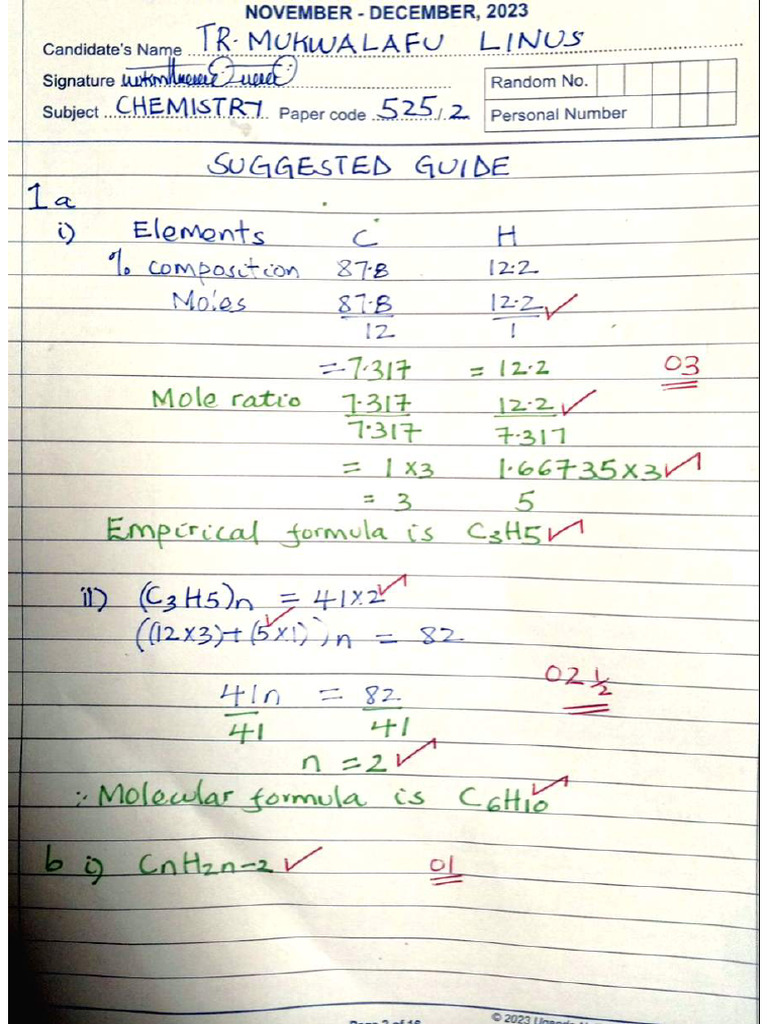 NOVEMBER - DECEMBER, 2023
Candidate's Name TR. MUKWALAFU LINUS
Signature
Random No.
Subject CHEMISTRY Paper code 525/2
Personal Number
SUGGESTED GUIDE
1a
i) Elements C H
% composition 87.8 12.2
Moles 87.8 12.2 ✓
12 1
= 7.317 = 12.2 03
Mole ratio 7.317 12.2 ✓
7.317 7.317
= 1 x3 1.66735x3 ✓
= 3 5
Empirical formula is C3H5 ✓
ii) (C3H5)n = 41x2 ✓
((12x3)+(5x1))n = 82 ✓
02 1/2
41n = 82
41 41
n = 2 ✓
∴ Molecular formula is C6H10 ✓
b i) CnH2n-2 ✓ 01
© 2023